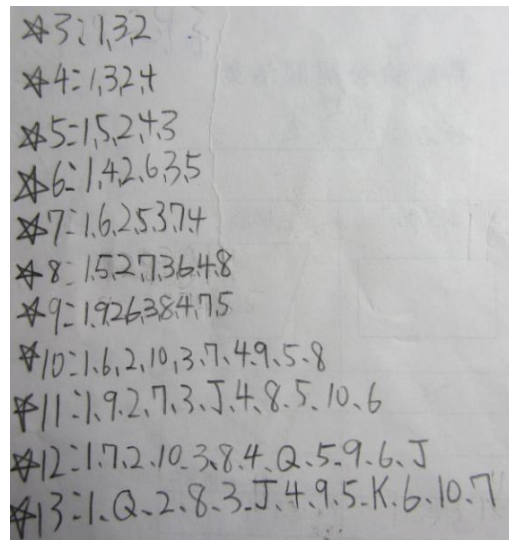 ☆3:1,3,2
☆4:1,3,2,4
☆5:1,5,2,4,3
☆6:1,4,2,6,3,5
☆7:1,6,2,5,3,7,4
☆8:1,5,2,7,3,6,4,8
☆9:1,9,2,6,3,8,4,7,5
☆10:1、6、2、10、3、7、4、9、5、8
☆11:1、9、2、7、3、J、4、8、5、10、6
☆12:1、7、2、10、3、8、4、Q、5、9、6、J
☆13:1、Q、2、8、3、J、4、9、5、K、6、10、7